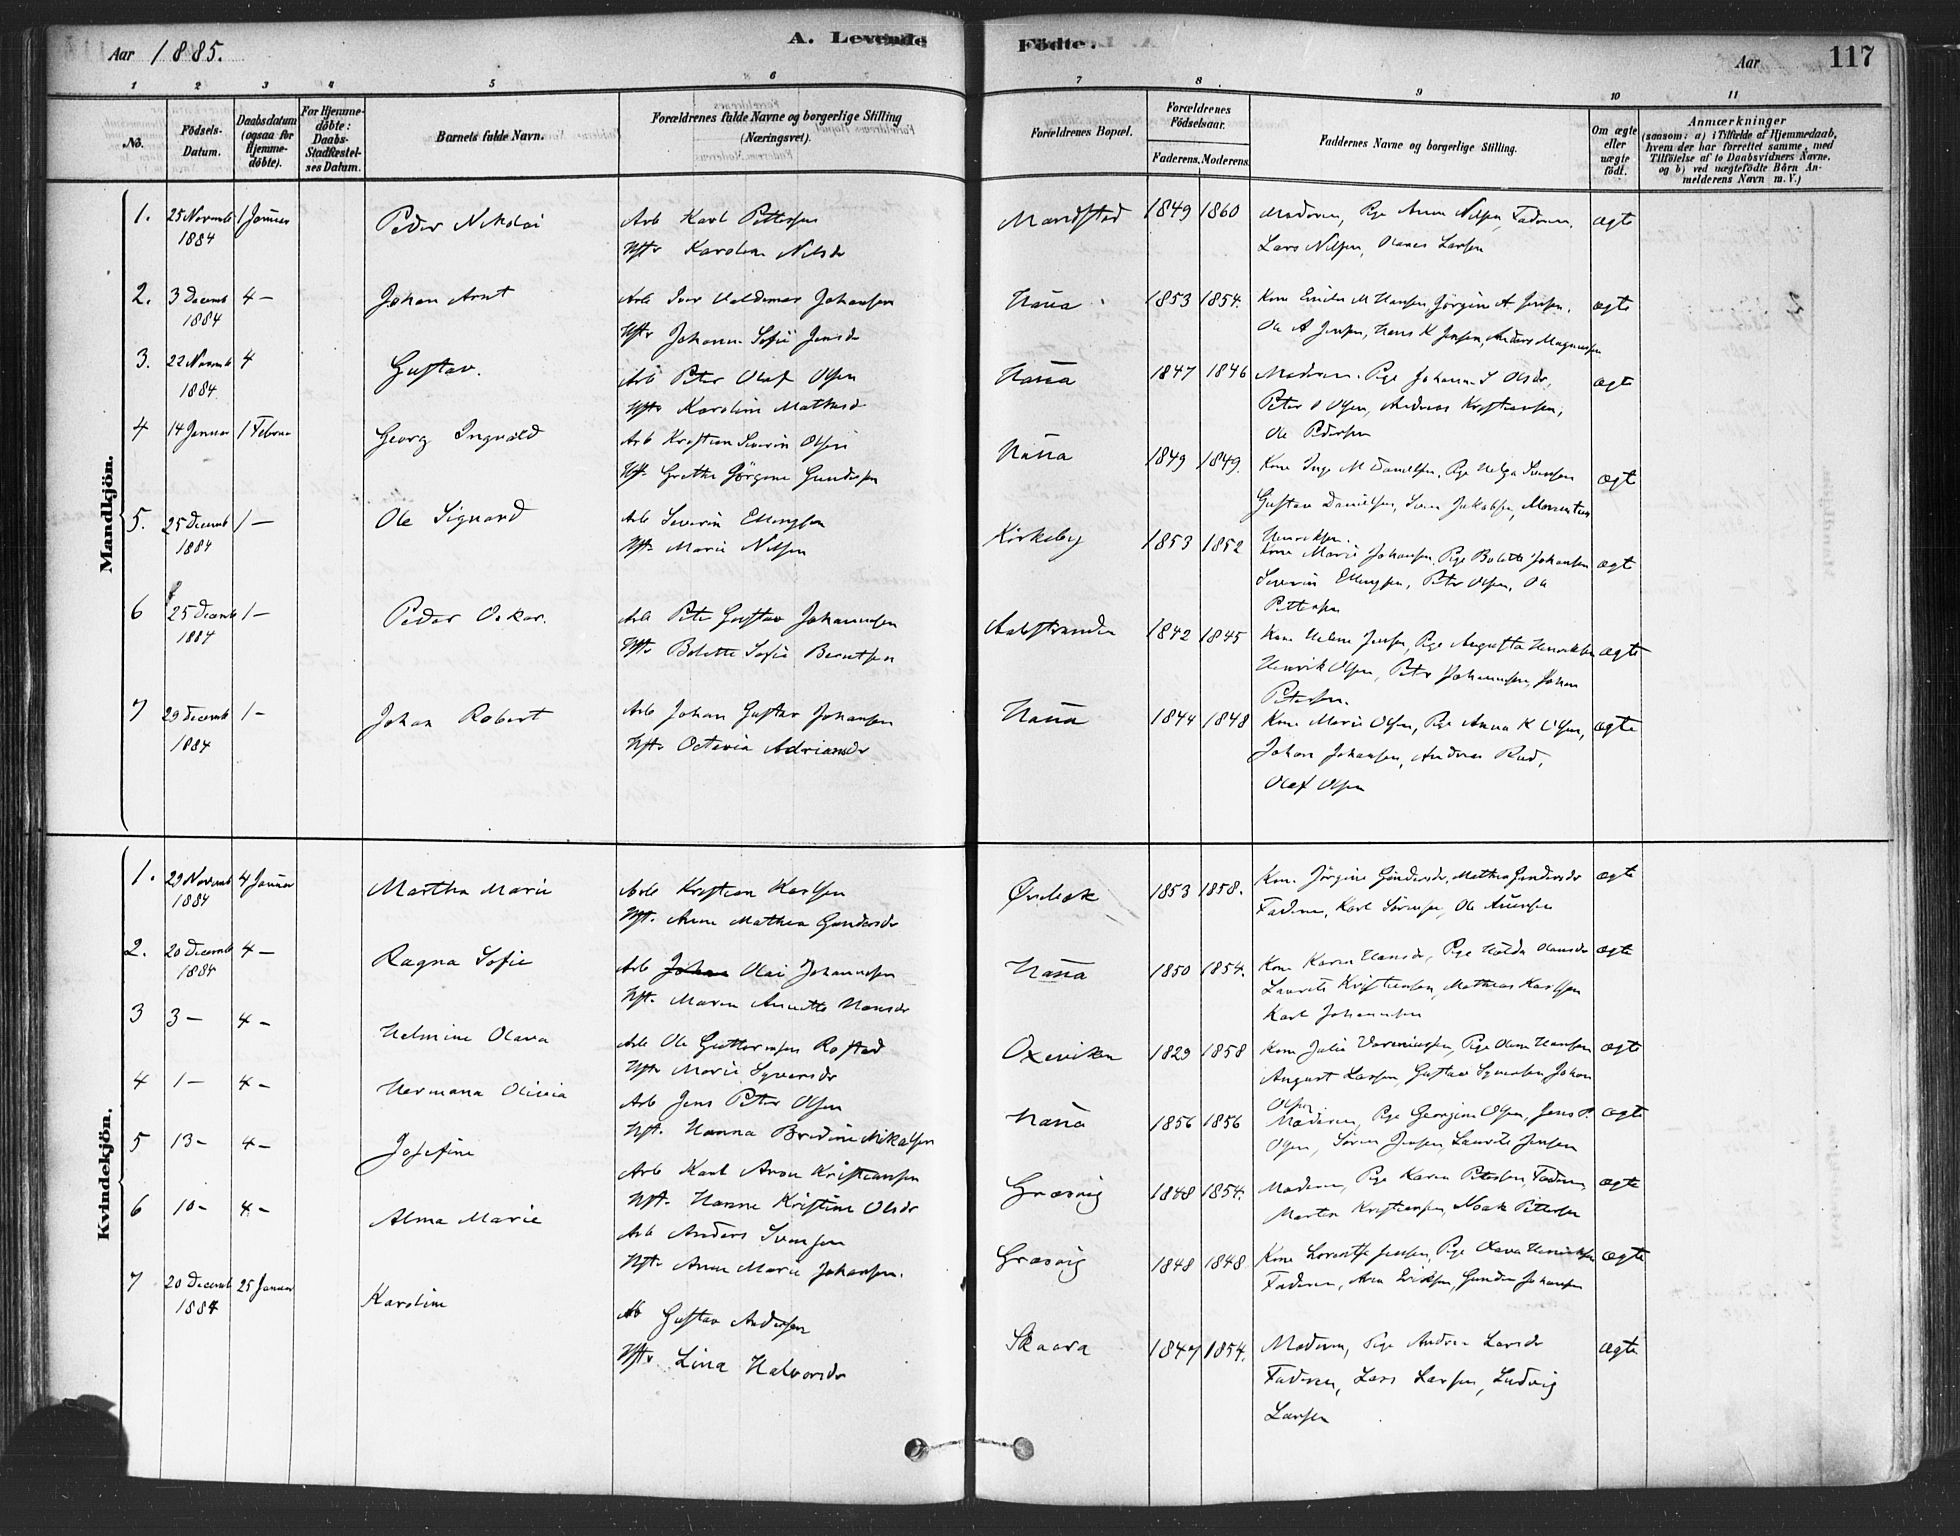 Aar 1885.
A. Levende Födte.
Aar
117
1 2 3 4 5 6 7 8 9 10 11
No.
Födsels-Datum.
Daabsdatum (ogsaa for Hjemme-döbte).
For Hjemme-döbte: Daabs-Stadfæstel-ses Datum.
Barnets fulde Navn.
Forældrenes fulde Navne og borgerlige Stilling (Næringsvei).
Forældrenes Bopæl.
Forældrenes Födselsaar.
Faderens. Moderens.
Faddernes Navne og borgerlige Stilling.
Om ægte eller uægte födt.
Anmærkninger
(saasom: a) i Tilfælde af Hjemmedaab,
hvem der har forrettet samme, med
Tilföielse af to Daabsvidners Navne.
og b) ved uægtefödte Börn An-
melderens Navn m. V.)
Mandkjön.
1. 25 Novemb 1884 1 Januar Peder Nikolai
Arb Karl Pettersen
Hst Karoline Nilsdr
1849 1860 Moderen, Pige Anne Nilsen, Faderen,
Lars Nilsen, Larsen
ægte
2. 3 Decemb 1884 4 - Johan Arnt
Arb Iver Valdemar Johansen
Hst Johanne Sofie Jensdr
1853 1854. Kone M Hansen, Jørgine A Jensen,
Ole A Jensen, Hans K Jensen, Anders Magnussen
ægte
3. 22 Novemb 1884 4 Gustav.
Arb Peter Olaf Olsen
Hst Karoline
1847 1846 Moderen. Pige Johanne S Olsdr,
Peter O Olsen, Andreas Kristiansen,
Ole Pedersen
ægte
4 14 Januar 1 Februar Georg Ingvald
Arb Kristian Severin Olsen
Hst Grethe Jørgine Gundersen
1849 1849. Kone Inge M Danielsen, Pige Helga Svensen
Gustav Danielsen, Sven Jakobsen,
Henriksen.
ægte
5. 25 Decemb 1884 1 - Ole Sigvard
Arb Severin Ellingsen
Hst Marie Nilsen
Kirkeby 1853 1852 Kone Marie Johansen, Pige Bolette Johansen
Severin Ellingsen, Peter Olsen, Ole
Pettersen
ægte
6 25 Decemb 1884 1 - Peder Oskar.
Arb Peter Gustav Johannesen
Hst Bolette Sofie Berntsen
1842 1845 Kone Helene Jensen, Pige Augusta Henriksen
Henrik Olsen, Peter Johannesen, Johan
Petersen.
ægte
7 29 Decemb 1884 1 - Johan Robert
Arb Johan Gustav Johansen
Hst Octavia Adriansdr
1844 1848 Kone Marie Olsen, Pige Anna K Olsen,
Johan Johansen, Andreas Rud,
Olaf Olsen
ægte
Kvindekjön.
1. 29 Novemb 1884 4 Januar Martha Marie
Arb Kristian Karlsen
Hst. Anne Mathea Gundersdr
1853 1858. Kone Jørgine Gundersdr, Mathea Gundersdr
Faderen, Karl Sørensen, Ole
ægte
2. 20 Decemb 1884 4 - Ragna Sofie
Arb Johan Olai Johannesen
Hst. Maren Annette Hansdr
1850 1854. Kone Karen Hansdr, Pige Hulda Hansdr
Laurits Kristiansen, Mathias Karlsen
Karl Johannesen
ægte
3 3 - 4 - Helmine Olava
Arb Ole Guttormsen Rostad
Hst Marie Syversdr
Oxeviken 1829 1858 Kone Julie, Pige Hansen
August Larsen, Gustav Syversen Johan
Olsen
ægte
4 1 - 4 - Hermana Olivia
Arb Jens Peter Olsen
Hst. Hanna Bredine Mikalsen
1856 1856 Moderen, Pige Georgine Olsen, Jens P.
Olsen, Søren Jensen, Laurits Jensen
ægte
5 13 - 4 - Josefine
Arb Karl Aron Kristiansen
Hst. Hanne Kristine Olsdr
Græsvig 1848 1854. Moderen, Pige Karen Petersen, Faderen,
Martin Kristiansen, Noak Pettersen
ægte
6 10 - 4 - Alma Marie
Arb Anders Svensen
Hst Anne Marie Johansen.
Græsvig 1848 1848. Kone Lorentse Jensen, Pige Olava Henriksen
Faderen, Eriksen, Gunder Johansen
ægte
7 20 Decemb 1884 25 Januar Karoline
Arb Gustav Andersen
Hst Lina Halvorsdr
Skaara 1847 1854. Moderen, Pige Andrea Larsdr
Faderen, Lars Larsen, Ludvig
Larsen
ægte